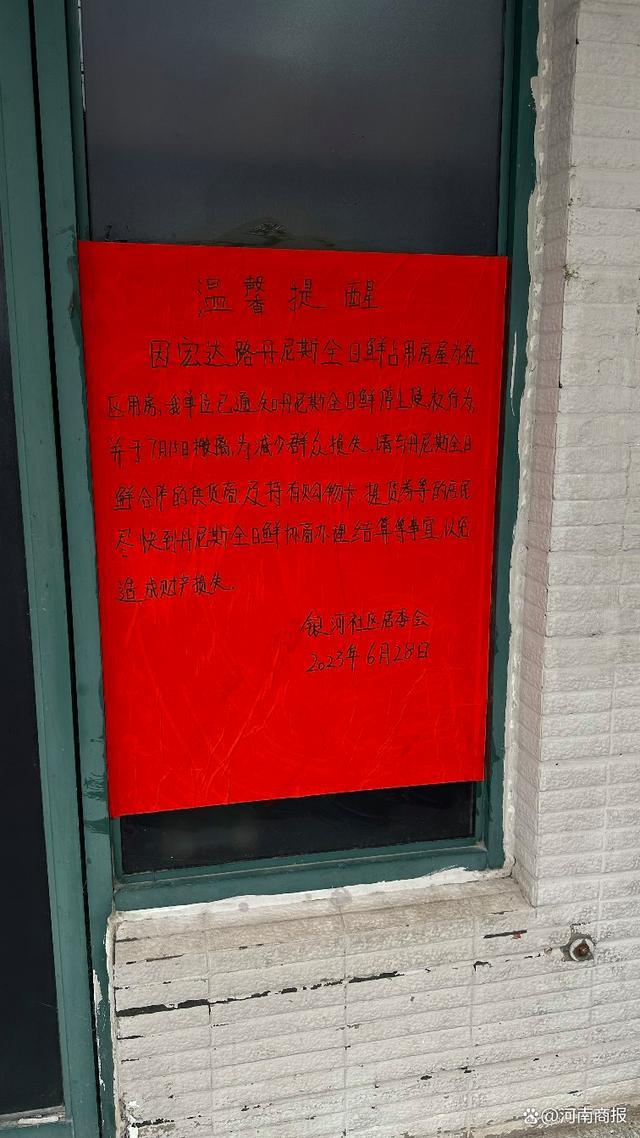 温馨提醒
因宏达路丹尼斯全日鲜占用房屋为社
区用房,我单位已通知丹尼斯全日鲜停止侵权行为,
并于7月15日搬离,为减少群众损失,请与丹尼斯全日
鲜合作的供货商及持有购物卡、提货券等的居民
尽快到丹尼斯全日鲜协商办理结算等事宜,以免
造成财产损失.
银河社区居委会
2023年6月28日
@河南商报